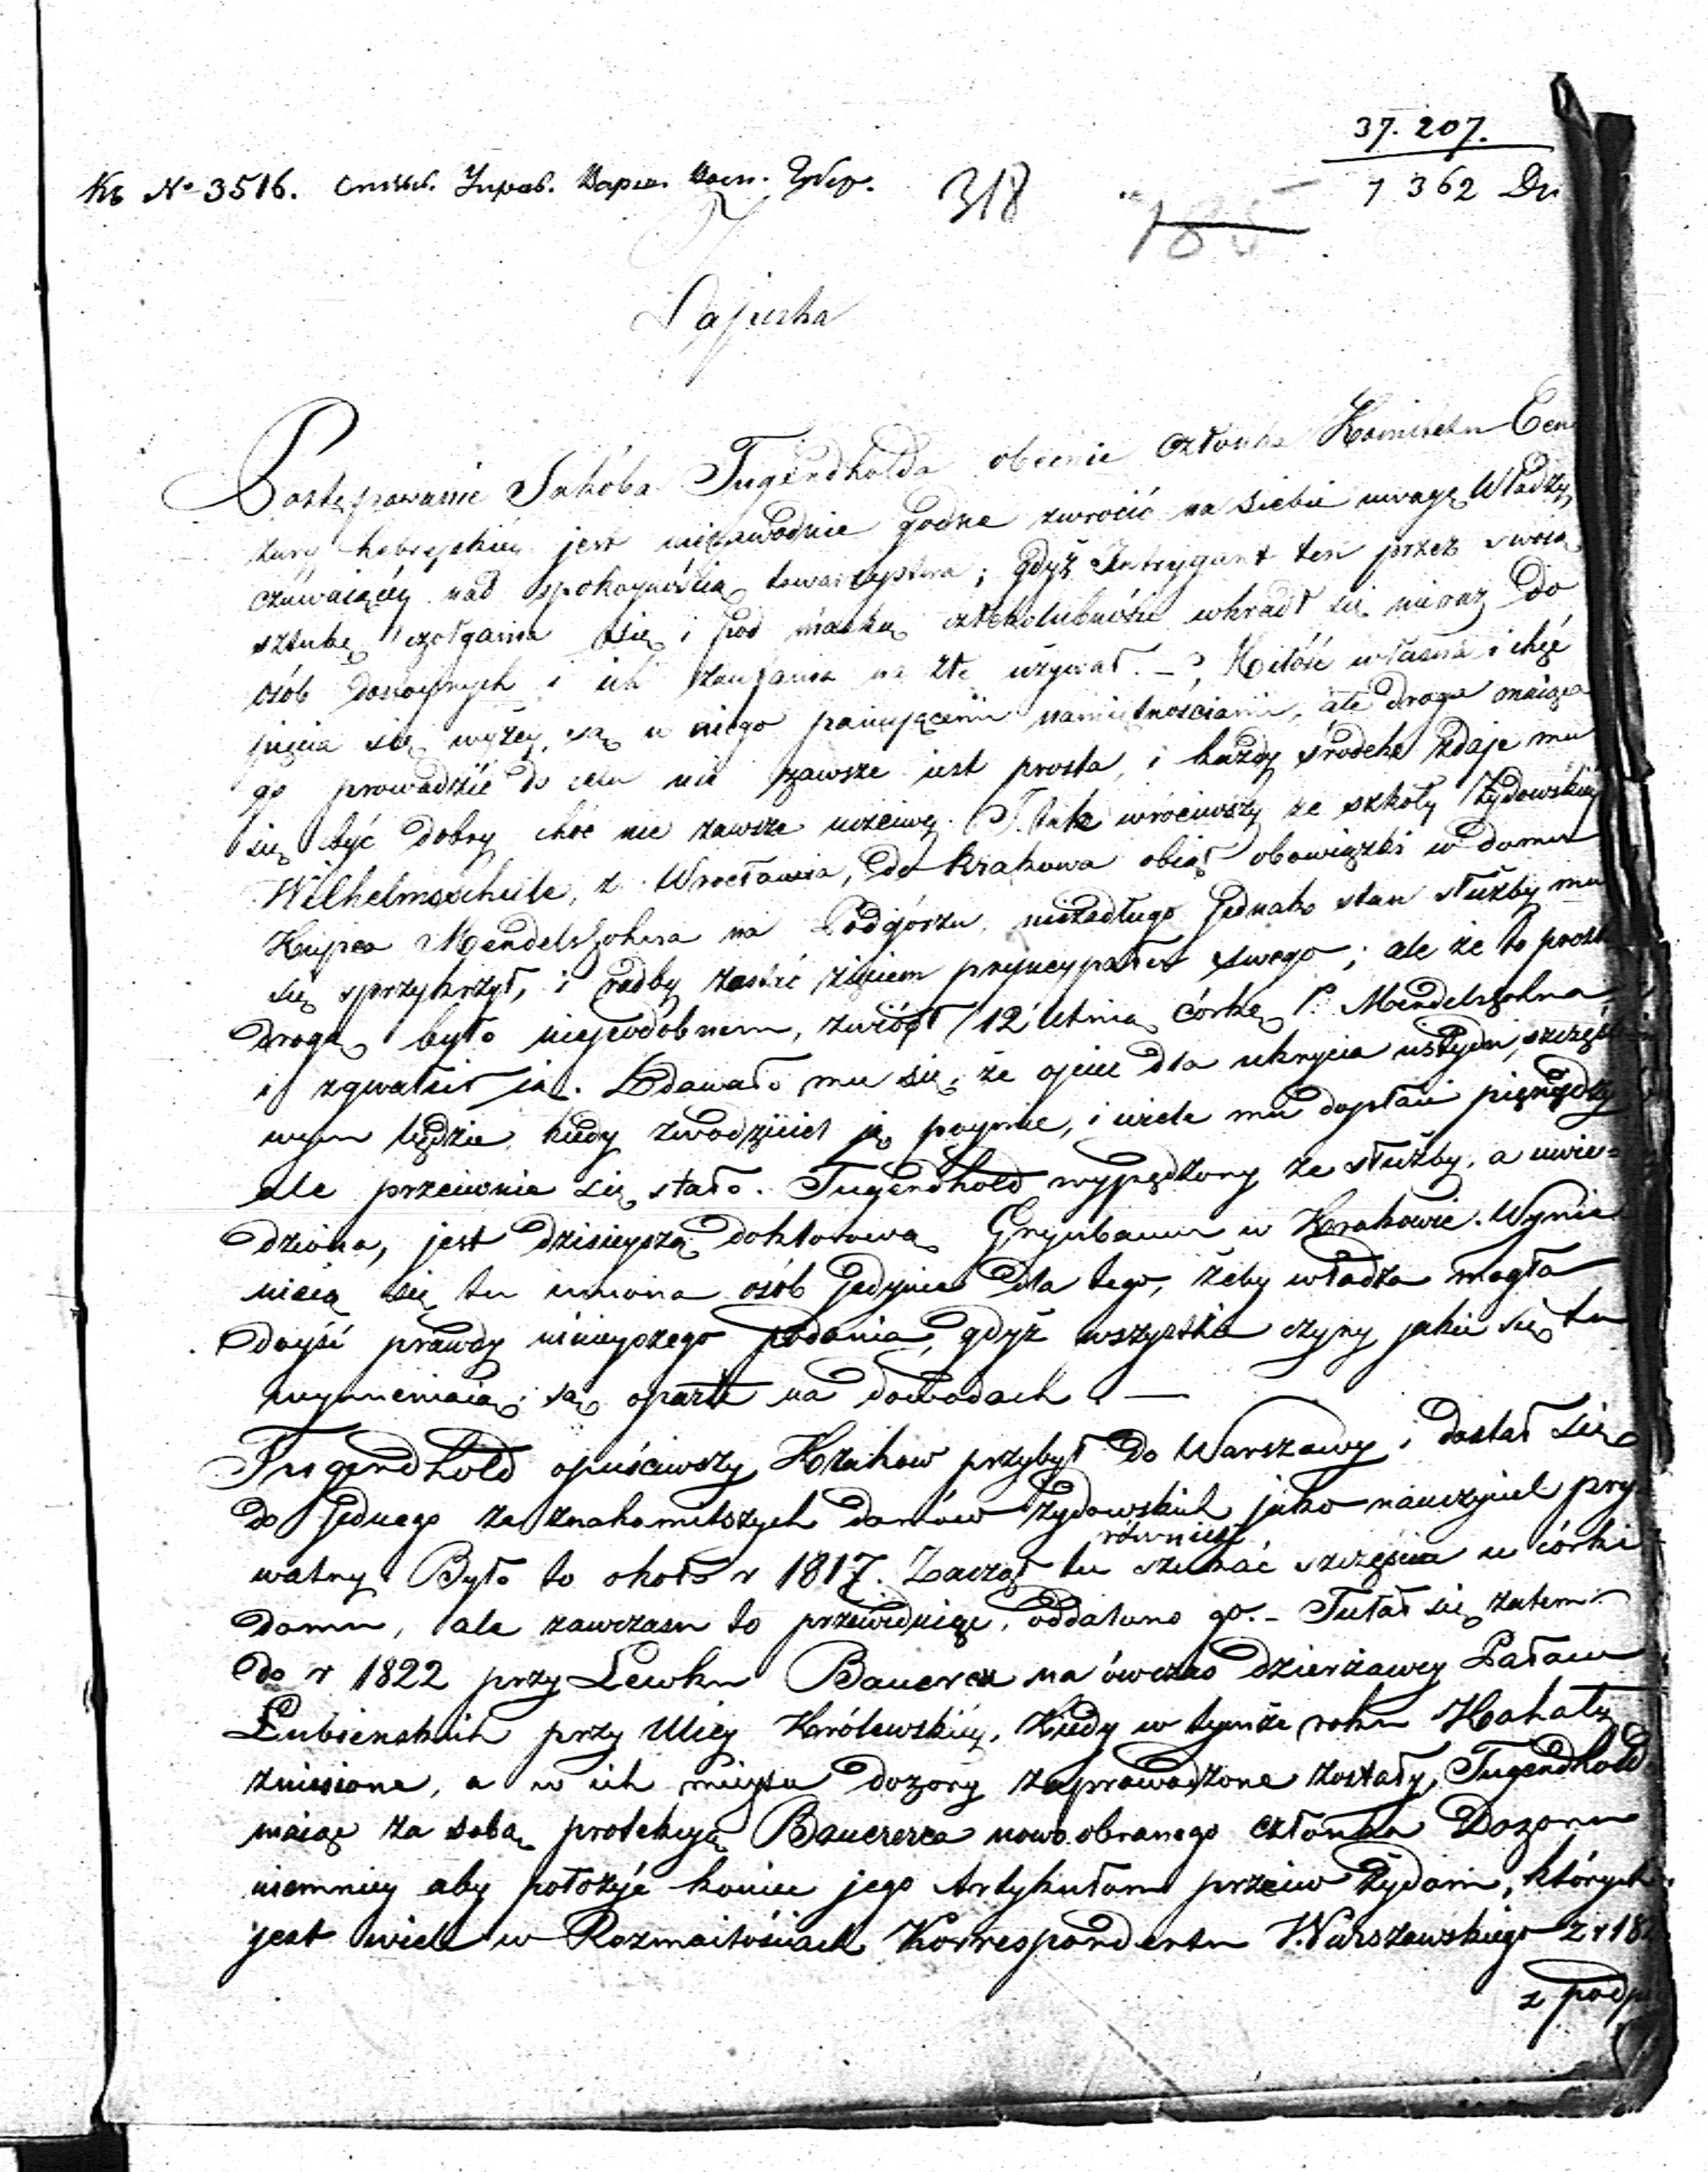 37. 207.
Къ № 3516. Управ. Варш. Воен. Губер. 318 185 1362 Dz
Zapiska
Postępowanie Jakóba Tugendholda obecnie członka Komitetu Cen
zury hebrajskiéy jest niezawodnie godne zwrócić na siebie uwagę Władzy
czuwaiącéy nad spokoynością towarzystwa; gdyż Intrygant ten przez swoią
sztukę czołgania się i pod maską człekolubności wkradł się nieraz do
osób dostoynych i ich zaufania na złe używał. – Miłość własna i chęć
pięcia się wyżey, są u niego panującemi namiętnościami, ale droga maiąca
go prowadzić do celu nie zawsze iest prosta, i każdy środek zdaje mu
się być dobry choć nie zawsze uczciwy. I tak wróciwszy ze szkoły Żydowskiéy
Wilhelmsschule, z Wrocławia, do Krakowa obiął obowiązki w domu
Kupca Mendelszohna na Podgórzu, niezadługo jednak stan służby mu
się sprzykrzył, i radby zostać zięciem pryncypała swego; ale że to prostą
drogą było niepodobnem, zwiódł 12 letnią córkę P. Mendelszohna
i zgwałcił ią. Zdawało mu się, że ojciec dla ukrycia wstydu, szczęśli
wym będzie kiedy zwodziciel ją poymie, i wiele mu dopłaci pieniędzy
ale przeciwnie się stało. Tugendhold wypędzony ze służby, a uwie=
dziona, jest dzisieyszą doktorową Grynbaum w Krakowie. Wymie
nieią się tu imiona osób jedynie dla tego, żeby władza mogła
doyść prawdy ninieyszego podania, gdyż wszystkie czyny jakie się tu
wymieniaią są oparte na dowodach. —
Tugendhold opuściwszy Kraków przybył do Warszawy i dostał się
do jednego ze znakomitszych domów żydowskich jako nauczyciel pry
watny. Było to około r 1817. Zaczął tu równiesz szukać szczęścia u córki
domu, ale zawczasu to przewidując, oddalono go. – Tułał się zatem
do r 1822 przy Lewku Bauererz na ówczas dzierżawcy Pałacu
Łubieńskich przy Ulicy Królewskiéy. Kiedy w tymże roku Kahały
zniesione, a w ich mieysce dozory zaprowadzone zostały, Tugendhold
maiąc za sobą protekcyą Bauererza nowo obranego członka Dozoru
niemniey aby położyć koniec jego Artykułom przeciw Żydom, których
jest wiele w Rozmaitościach Korrespondenta Warszawskiego z r 18
z podp